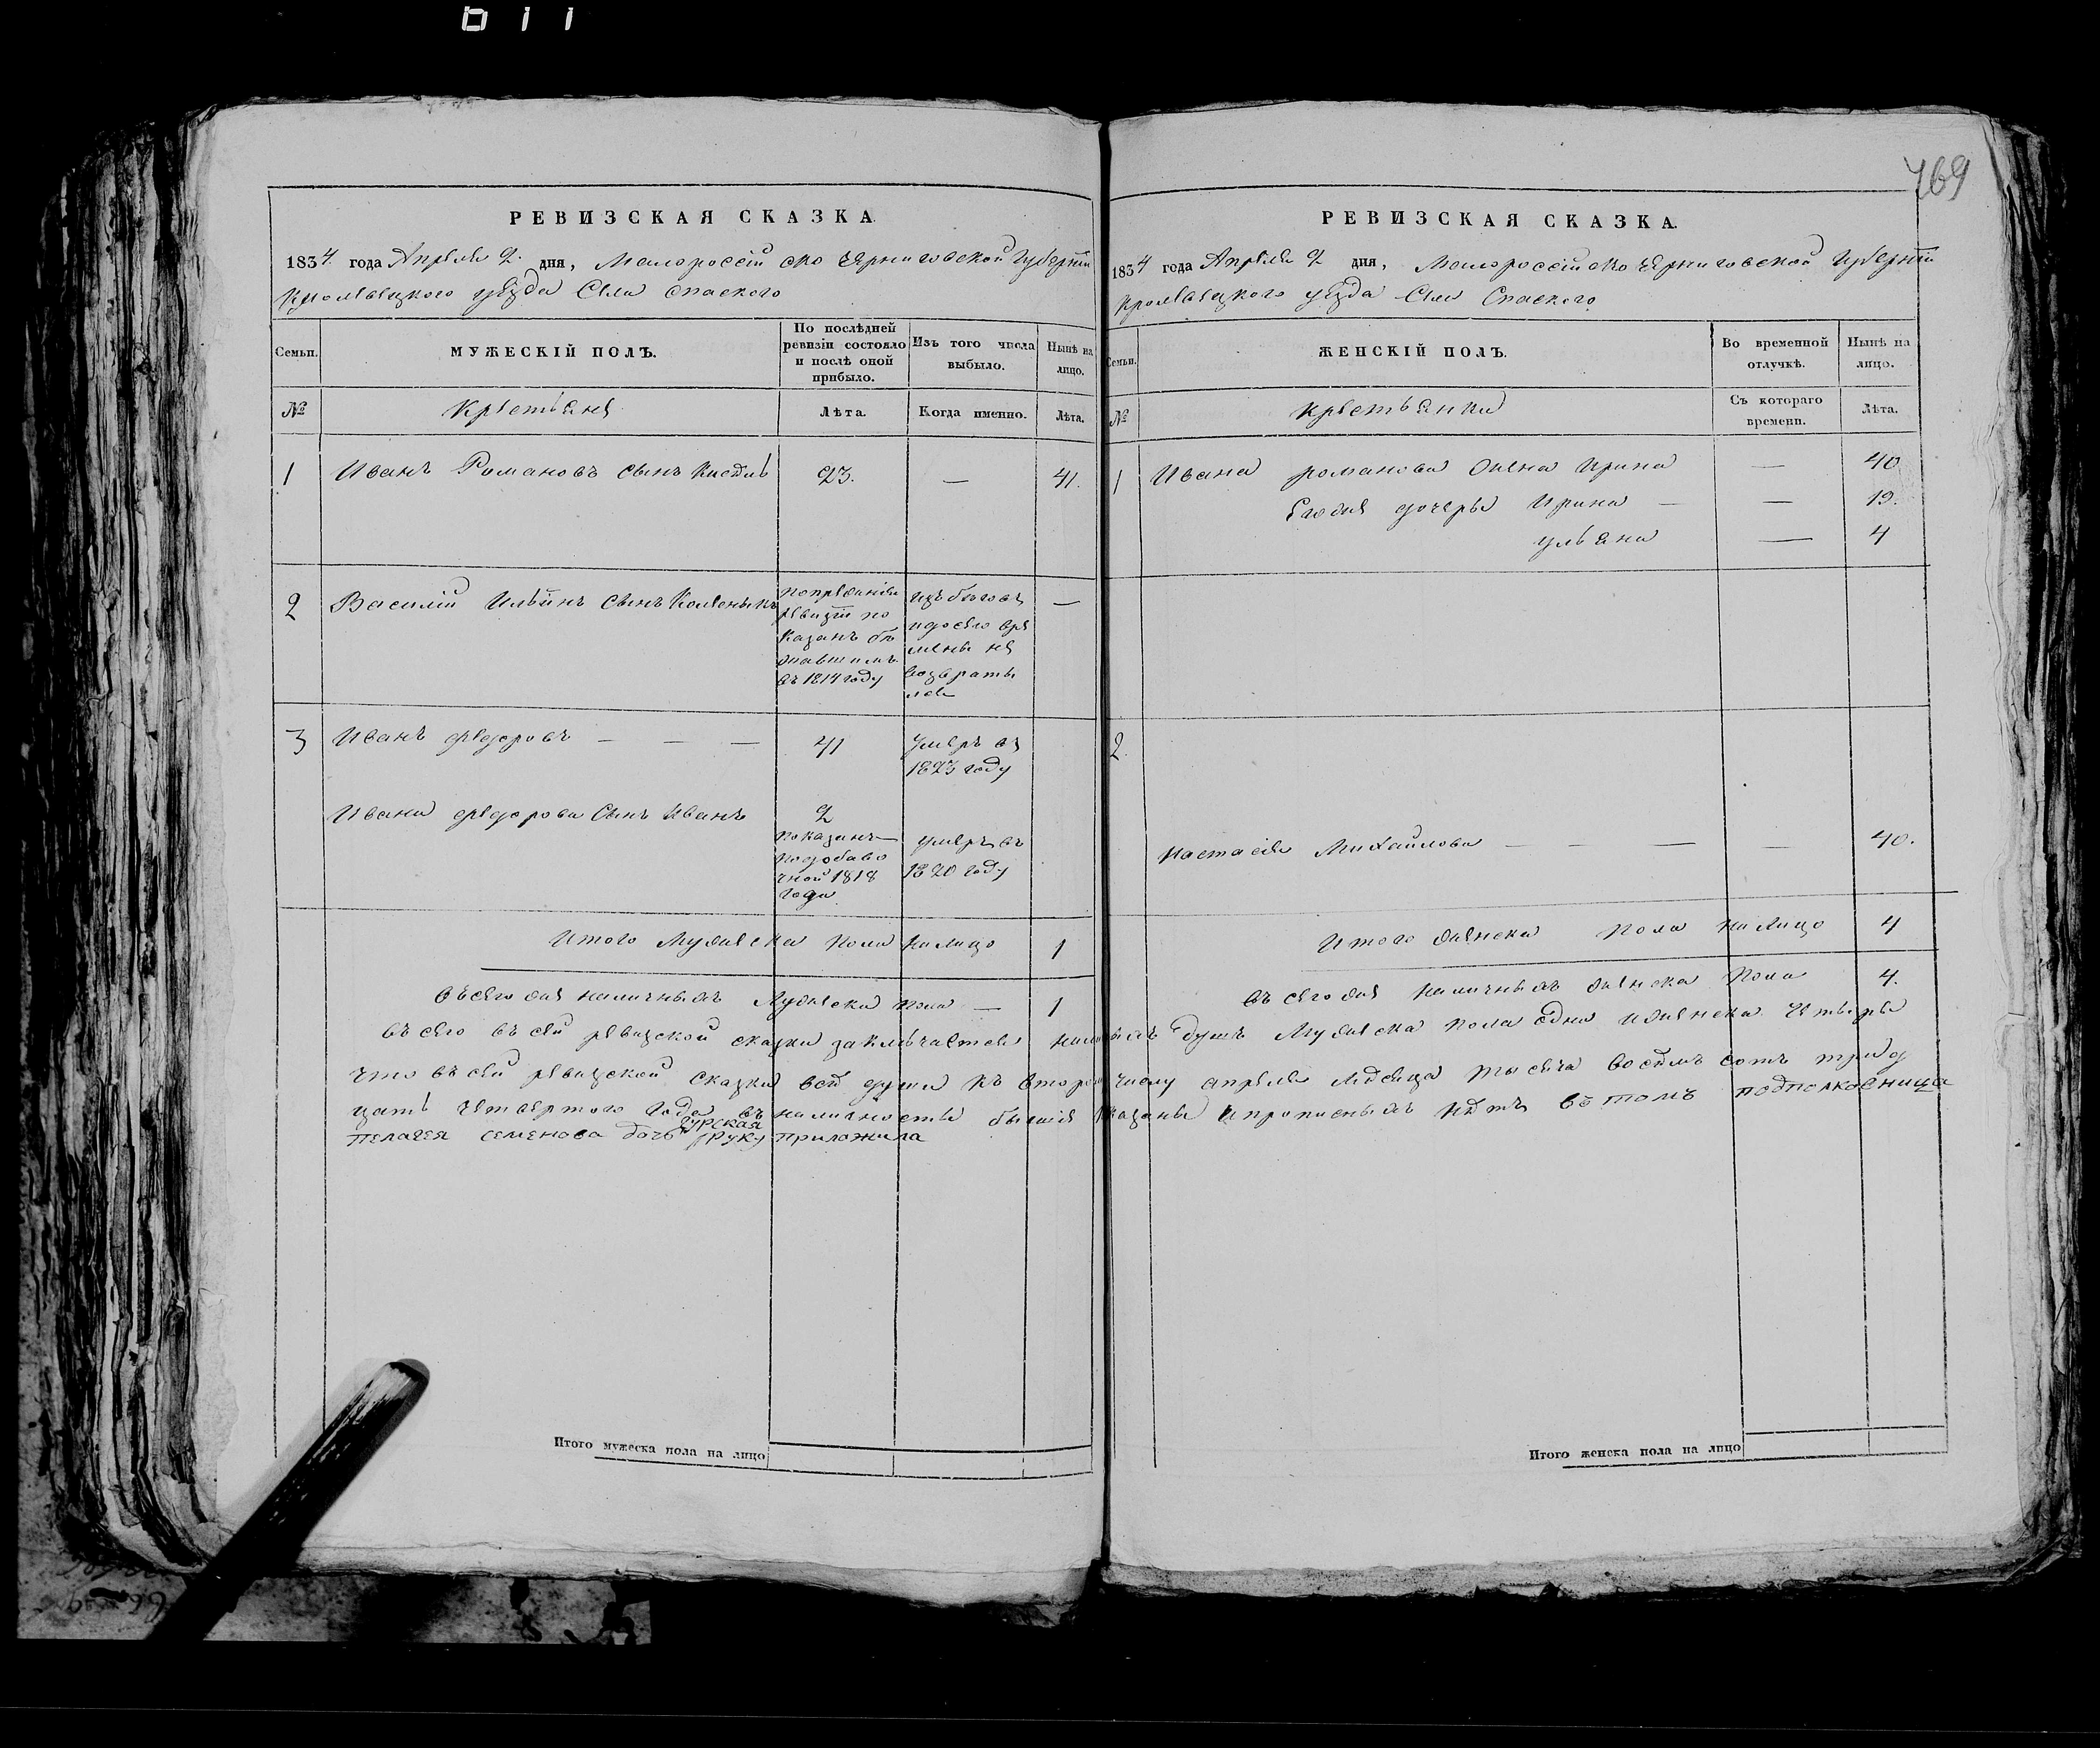 611
769
РЕВИЗСКАЯ СКАЗКА.
1834 года Апреля 2 дня, Малороссийско Черниговской Губернии
Кролевецкого уезда Села Спаского
Семьи.
МУЖЕСКІЙ ПОЛЪ.
По послѣдней ревизіи состояло и послѣ оной прибыло.
Изъ того числа выбыло.
Нынѣ на лицо.
№
Крестьяне
Лѣта.
Когда именно.
Лѣта.
1 Иванъ Романовъ сынъ 23. — 41.
2 Василій Ильинъ сынъ —
по прежней
ревизіи по
казанъ бе
жавшимъ
въ 1814 году
изъ бегов
и до сего вре
мены не
возврати
лся
3 Иванъ федоровъ — — — 41
умеръ въ
1823 году
Ивана федорова сынъ Иванъ 2
показанъ
по добаво
чной 1818
года
умеръ въ
1820 году
Итого Мужеска пола на лицо 1
въсего же наличныхъ Мужеска пола — 1
РЕВИЗСКАЯ СКАЗКА.
1834 года Апреля 2 дня, Малороссийско Черниговской Губернии
Кролевецкого уезда Села Спаского
Семьи.
ЖЕНСКІЙ ПОЛЪ.
Во временной отлучкѣ.
Нынѣ на лицо.
№
Крестьянки
Съ котораго времени.
Лѣта.
1 Ивана романова жена Ирина — 40
Его же дочеры Ирина — — 19.
ульяна — 4
2.
Настасія Михайлова — — — — 40.
Итого женска пола на лицо 4
въ сего же наличныхъ женска пола 4.
въ сего въ сей ревизской сказки заключается наличныхъ душъ Мужеска пола одна и женска четыры
что въ сей ревизской сказки все души къ второму числу апреля месяца тысяча восемъ сотъ тридъ
цать четвертого года въ наличносты бышіе показаны и прописныхъ нетъ въ томъ подполковница
пелагея семенова дочь гурская руку приложила
Итого мужеска пола на лицо
Итого женска пола на лицо